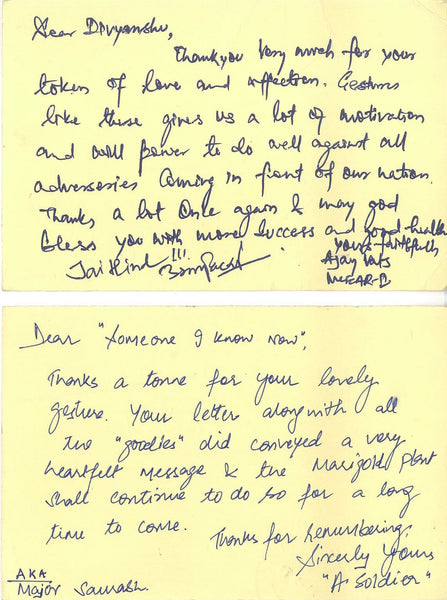 Dear Divyanshu,
Thankyou very much for your
token of love and affection. Gestures
like these gives us a lot of motivation
and will power to do well against all
adversaries coming in front of our nation.
Thanks a lot once again & may god
bless you with more success and good health
Jai Hind !!!
yours faithfully
Ajay Vats
Dear "Someone I know now",
Thanks a tonne for your lovely
gesture. Your letter alongwith all
the "goodies" did conveyed a very
heartfelt message & the Marigold plant
shall continue to do so for a long
time to come.
Thanks for remembering,
Sincerly Yours
"A Soldier"
AKA
Major Saurabh.